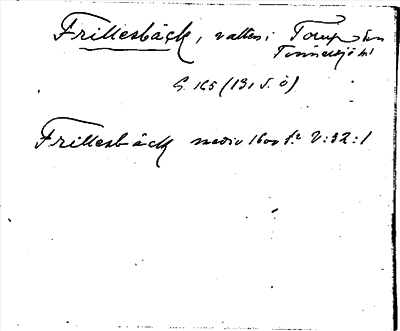 Frillesbäck, vatten i Torup sn
Tönnersjö hd
G. 165 (131 S. Ö)
Frillesbäck medio 1600 t. V:32:1